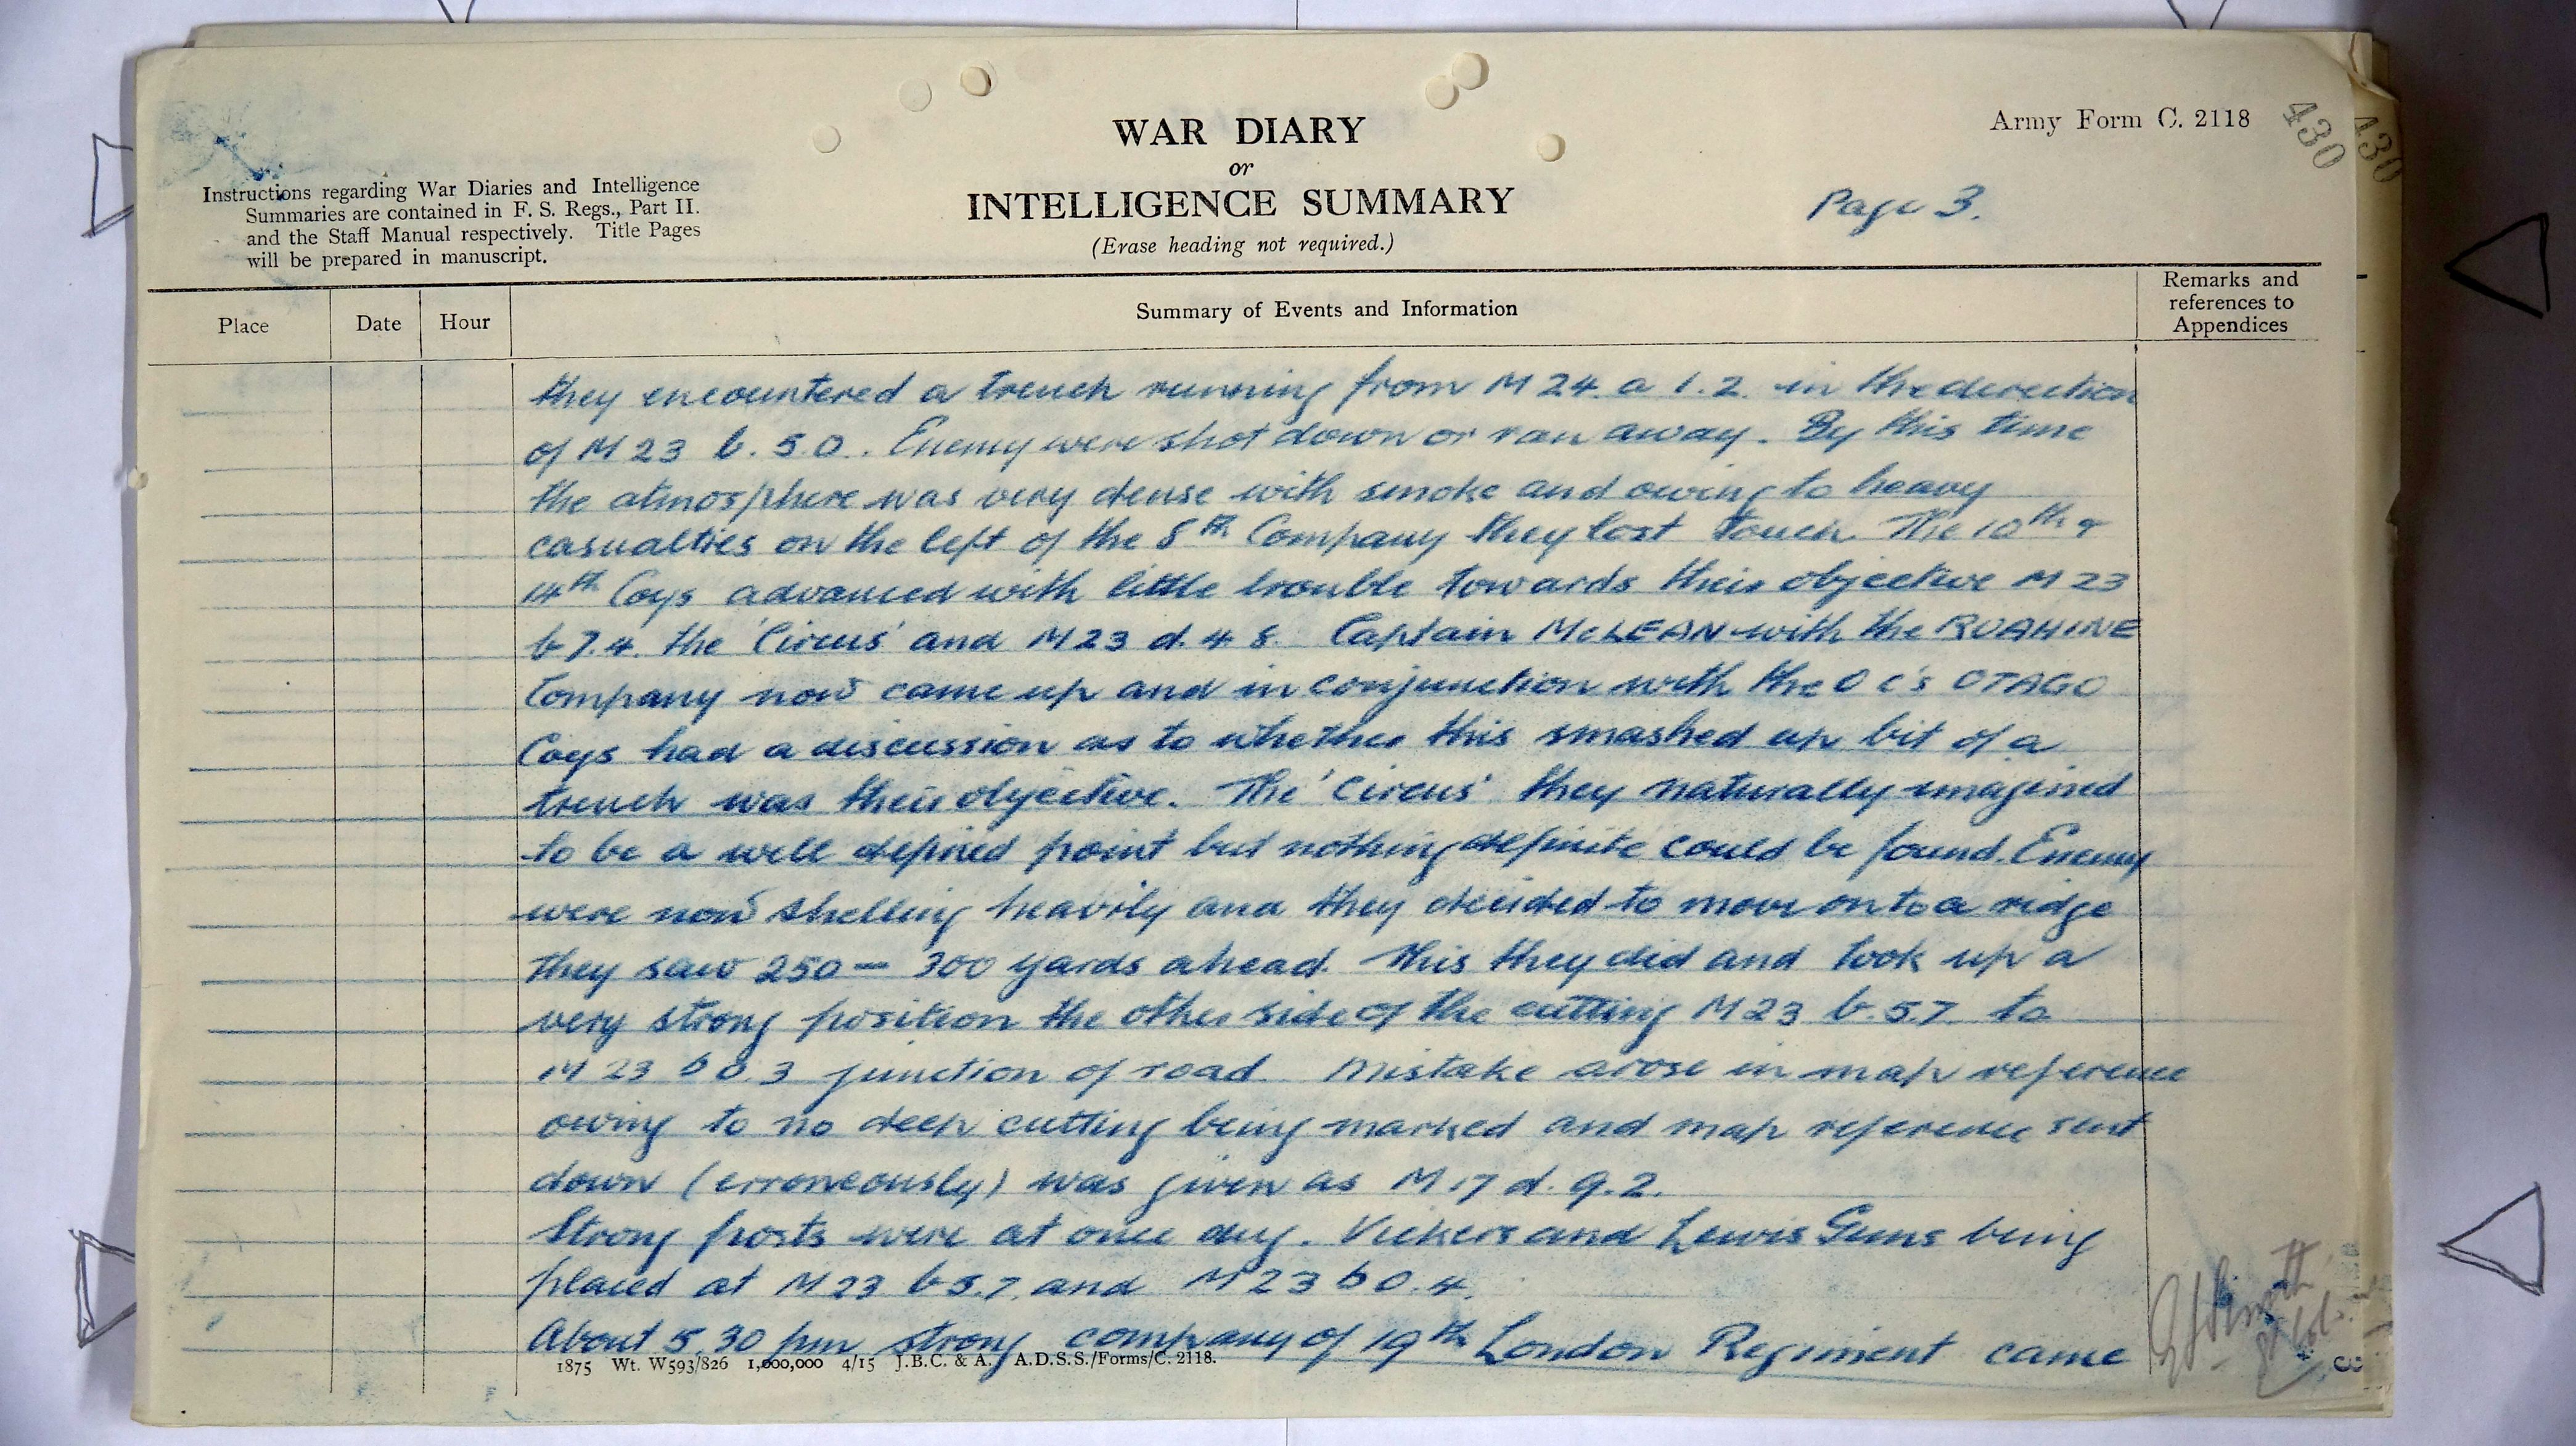 WAR DIARY
or
INTELLIGENCE SUMMARY
(Erase heading not required.)
Army Form C. 2118
430
430
Instructions regarding War Diaries and Intelligence
Summaries are contained in F. S. Regs., Part II.
and the Staff Manual respectively. Title Pages
will be prepared in manuscript.
Page 3.
Place
Date
Hour
Summary of Events and Information
Remarks and
references to
Appendices
they encountered a trench running from M 24. a 1.2. in the direction
of M 23 b. 5.0.. Enemy were shot down or ran away. By this time
the atmosphere was very dense with smoke and owing to heavy
casualties on the left of the 8th Company they lost touch. The 10th &
14th Coys advanced with little trouble towards their objective M 23
b 7.4. the 'Circus' and M 23 d. 4 8. Captain McLEAN with the RUAHINE
Company now came up and in conjunction with the O C's OTAGO
Coys had a discussion as to whether this smashed up bit of a
trench was their objective. The 'Circus' they naturally imagined
to be a well defined point but nothing definite could be found. Enemy
were now shelling heavily and they decided to move on to a ridge
they saw 250 - 300 yards ahead. This they did and took up a
very strong position the other side of the cutting M 23 b. 5.7. to
M 23 b 0.3 junction of road. Mistake arose in map reference
owing to no deep cutting being marked and map reference sent
down (erroneously) was given as M 17 d. 9.2.
Strong posts were at once dug. Vickers and Lewis Guns being
placed at M 23 b 5.7. and M 23 b 0.4.
About 5.30 pm strong company of 19th London Regiment came
1875 Wt. W593/826 1,000,000 4/15 J.B.C. & A. A.D.S.S./Forms/C. 2118.